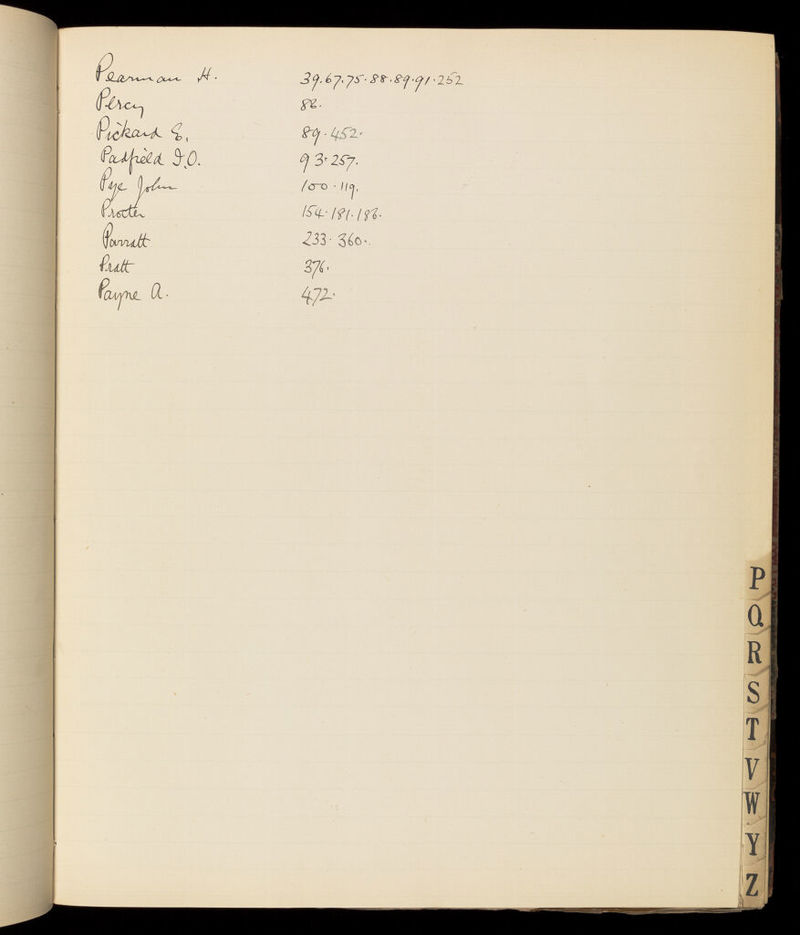 Pearman H. 39.67.75.88.89.91.252
Percy 88.
Pickard E. 89.452.
Padfield I.O. 93.257.
Pye John 100.119.
Procter 154.181.186.
Parratt 233.360.
Pratt 376.
Payne A. 472.
P
Q
R
S
T
V
W
Y
Z